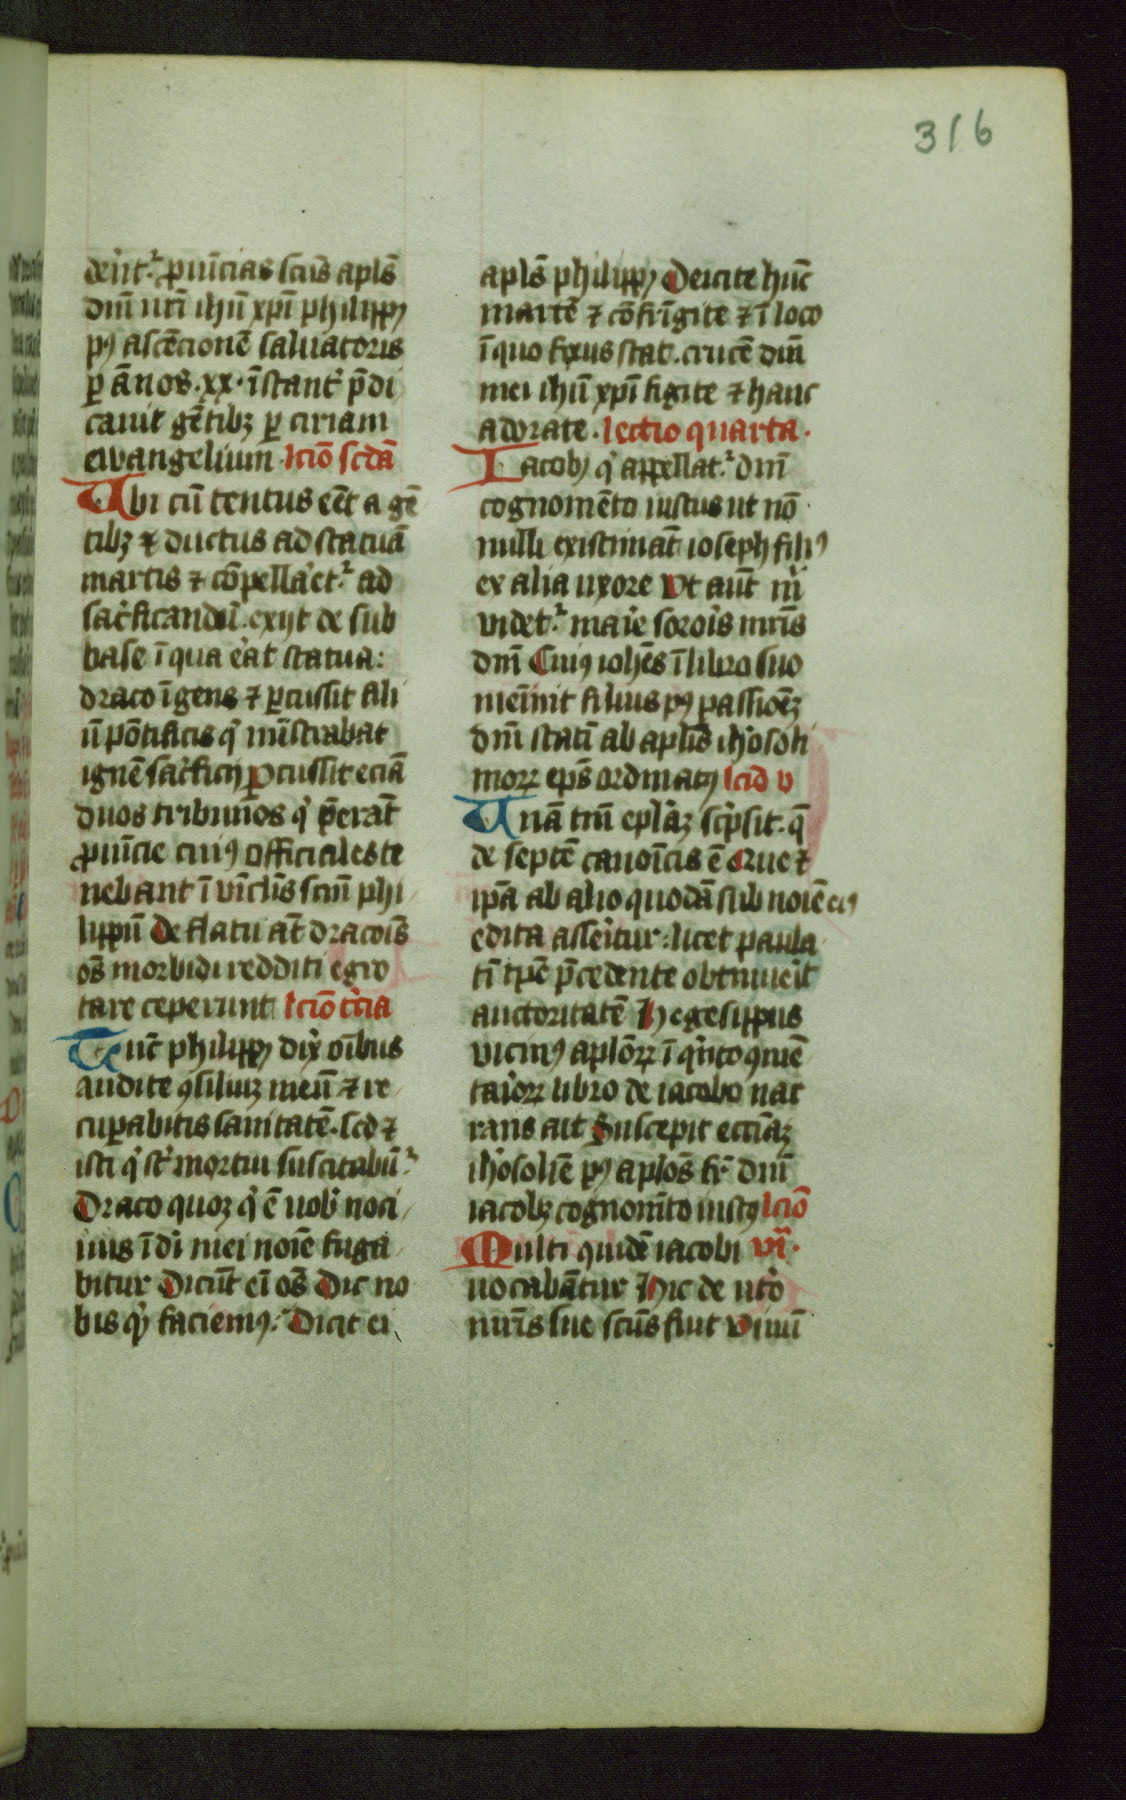 316
der̾nt᷑ ꝓuīcias scūs apl̄s
dn̄i nr̄i ihū xp̄i philippꝯ
pꝰ ascēcionē saluatoris
ꝑ ānos .xx. īstant̾ p̄di
cauit gētibꝫ ꝑ ciriam
ewangelium lcıō scdā
Ubi cū tentus eēt a gē
tibꝫ ⁊ ductus ad statuā
martis ⁊ cōpellar̾et᷑ ad
sac̾ficandū. exijt de sub
base ī qua er̾at statua:
draco īgens ⁊ ꝑcussit fili
ū pōtificis q̾ mīstrabat
ignē sac̾ficij ꝑcussit eciā
duos tribunos q̾ p̄erāt
ꝓuīcie cuiꝰ officiales te
nebant ī vīcl̄is scm̄ phi
lippū De flatu āt dracōis
oēs morbidi redditi egro
tare ceperunt lcıō t̾cia
Tūc philippꝯ dix̾ oībus
audite ꝯsiliuꝫ meū ⁊ re
cuꝑabitis sanitatē. sed ⁊
isti q̾ st̄ mortui suscitabūt᷑
Draco quoqꝫ q̾ ē uob̾ noci
uus ī di̾ mei noīe fuga
bitur Dicūt ei oēs Dic no
bis q̾ faciemꝰ. Dicit ei
apl̄s philippꝯ Deicite hūc
martē ⁊ cōfrīgite ⁊ ī loco
ī quo fixus stat. crucē dn̄i
mei ihū xp̄i figite ⁊ hanc
adorate. lectio quarta.
Iacobꝯ q̾ appellat᷑ dn̄i
cognomēto iustus ut nō
nulli existimāt ioseph filiꝰ
ex alia uxore Vt aūt m̾
videt᷑ marie soroīs mr̄is
dn̄i Cuiꝰ ioh̄es ī libro suo
memīit filius pꝰ passionēꝫ
dn̄i statī ab apl̄is ih̾osoli
moꝝ ep̄s ordinatꝯ lcıō v
Unā tm̄ epl̄aꝫ sc̾psit. q̄
de septē canoīcis ē Que ⁊
ip̄a ab alio quodā sub noīe eiꝰ
edita asser̾itur: licet paula
tī tp̄e p̄cedente obtinuer̾it
auctoritatē Hegesippus
vicinꝰ apl̄oꝝ ī q̾nto ꝯmē
tar̾ioꝝ libro de iacobo nar
rans ait Suscepit ecciāꝫ
ih̾osolīe pꝰ apl̄os fr̄ dn̄i
iacobꝯ cognomīto iustꝯ lcıō
Multi quidē iacobi vi̾.
uocabātur Hic de ut̾o
mr̄is sue scūs fuit Vinū